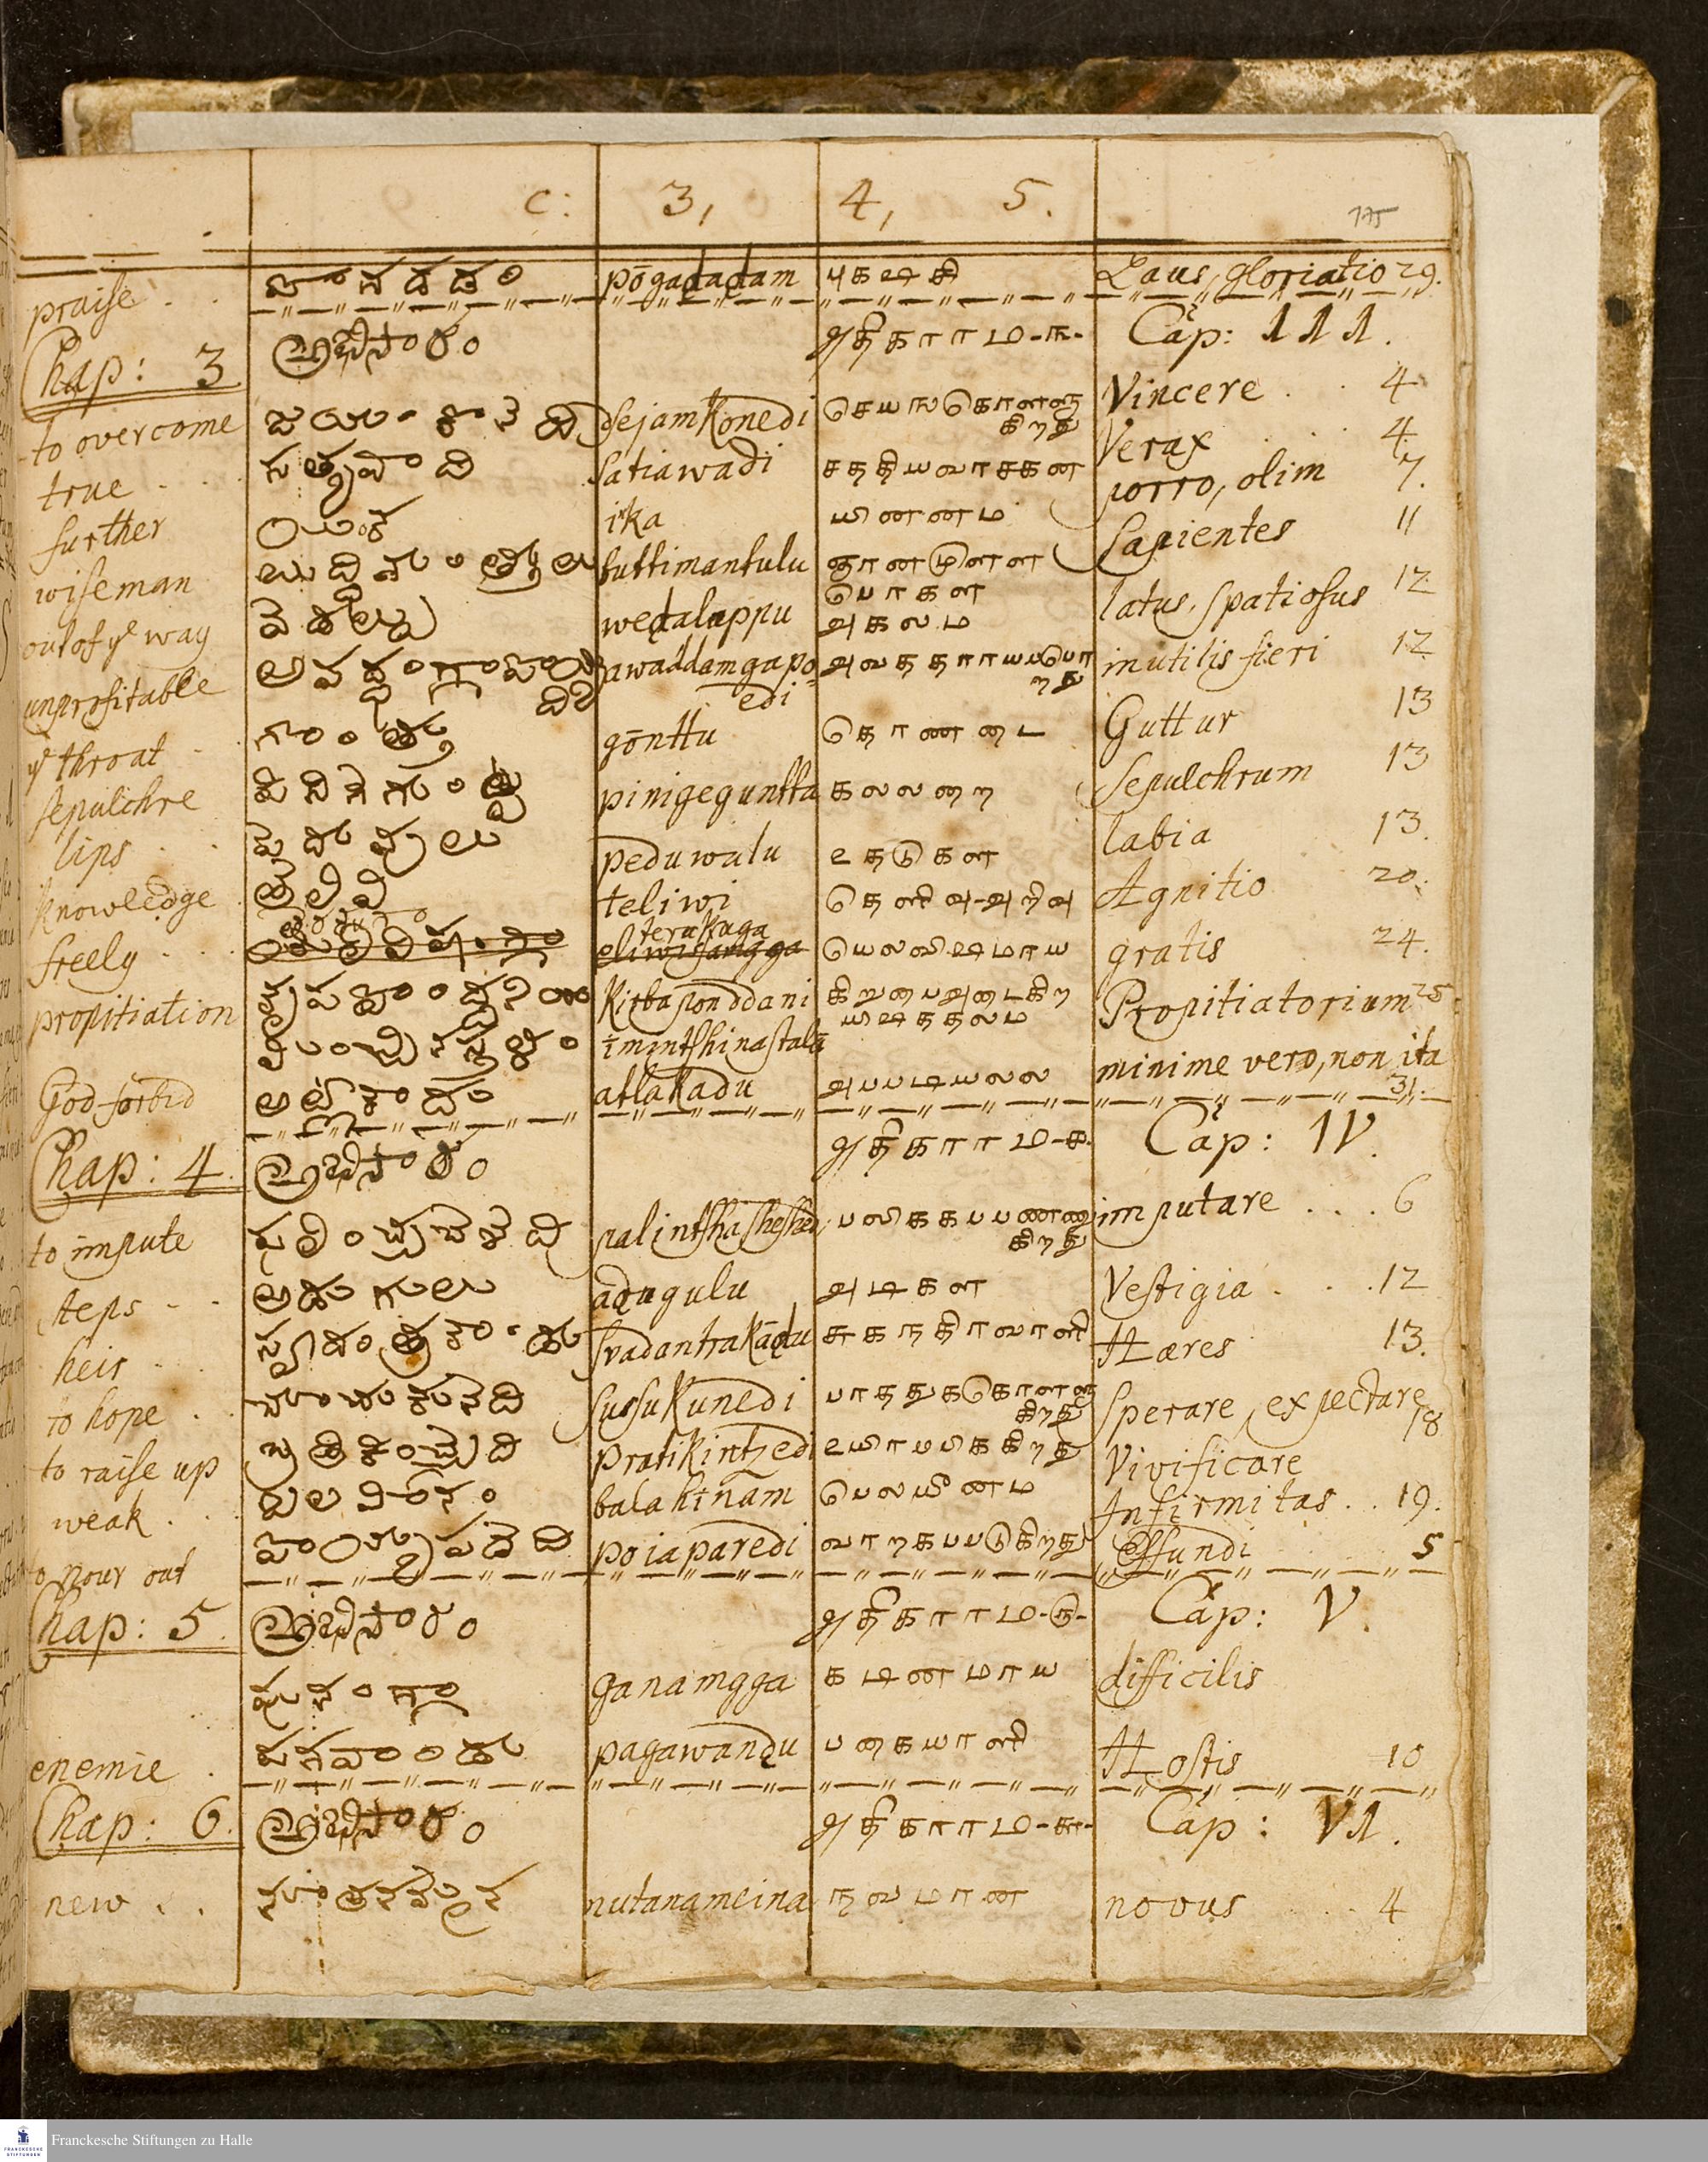 C: 3, 4, 5.
175
praise పొగడడం pōgadadam புகழசி Laus, gloriatio 29.
Chap: 3 அதிகாரம-௩- Cap: 111.
to overcome sejamkonedi செயஙகொளளு Vincere 4
கிறது
true సత్యవాది satiawadi சததியவாசகன Verax 4
further ఇంక ika யின்னம porro, olim 7.
wiseman buttimantulu ஞானமுளள Sapientes 11
பொகள
out of yͤ way wedalappu அகலம latus, spatiosus 12
unprofitable awaddamgapo அவததமாயபபொ inutilis fieri 12
edi றது
yͤ throat గొంతు gōnttu தொணடை Guttur 13
sepulchre pinigeguntta கலலறை Sepulchrum 13
lips పెదవులు peduwulu உதடுகள labia 13.
knowledge తెలివి teliwi தெளிவு-அறிவு Agnitio 20.
terakuga
freely eliwisamgga gratis 24.
propitiation Kirbaponddani கிறுபைஅடைகிற Propitiatorium 25.
imintshinastalā
God forbid అట్లాకాదు atlakadu அபபடியலல minime vero, non ita
31.
Chap: 4. அதிகாரம-௪- Cap: IV.
to impute பலிககபபணணு imputare 6
கிறது
steps అడుగులు adugulu அடிகள Vestigia 12
heir svadantrakādu சுதநதிரவாளி Hæres 13.
to hope sussukunedi பாததுகொளளு Sperare, expectare
கிறது 18
to raise up బ్రతికించేది pratikintzedi உயிரபபிககிறது Vivificare
weak balahīnam பெலயீனம Infirmitas 19.
to pour out poiaparedi வாறகபபடுகிறது Effundi 5
Chap: 5. அதிகாரம-௫- Cap: V.
ఘనంగా ganamgga கடினமாய difficilis
enemie పగవాండు pagawandu பகையாளி Hostis 10
Chap: 6. அதிகாரம-௬- Cap: VI.
new nutanameina நவமான novus 4
FRANCKESCHE
STIFTUNGEN
Franckesche Stiftungen zu Halle